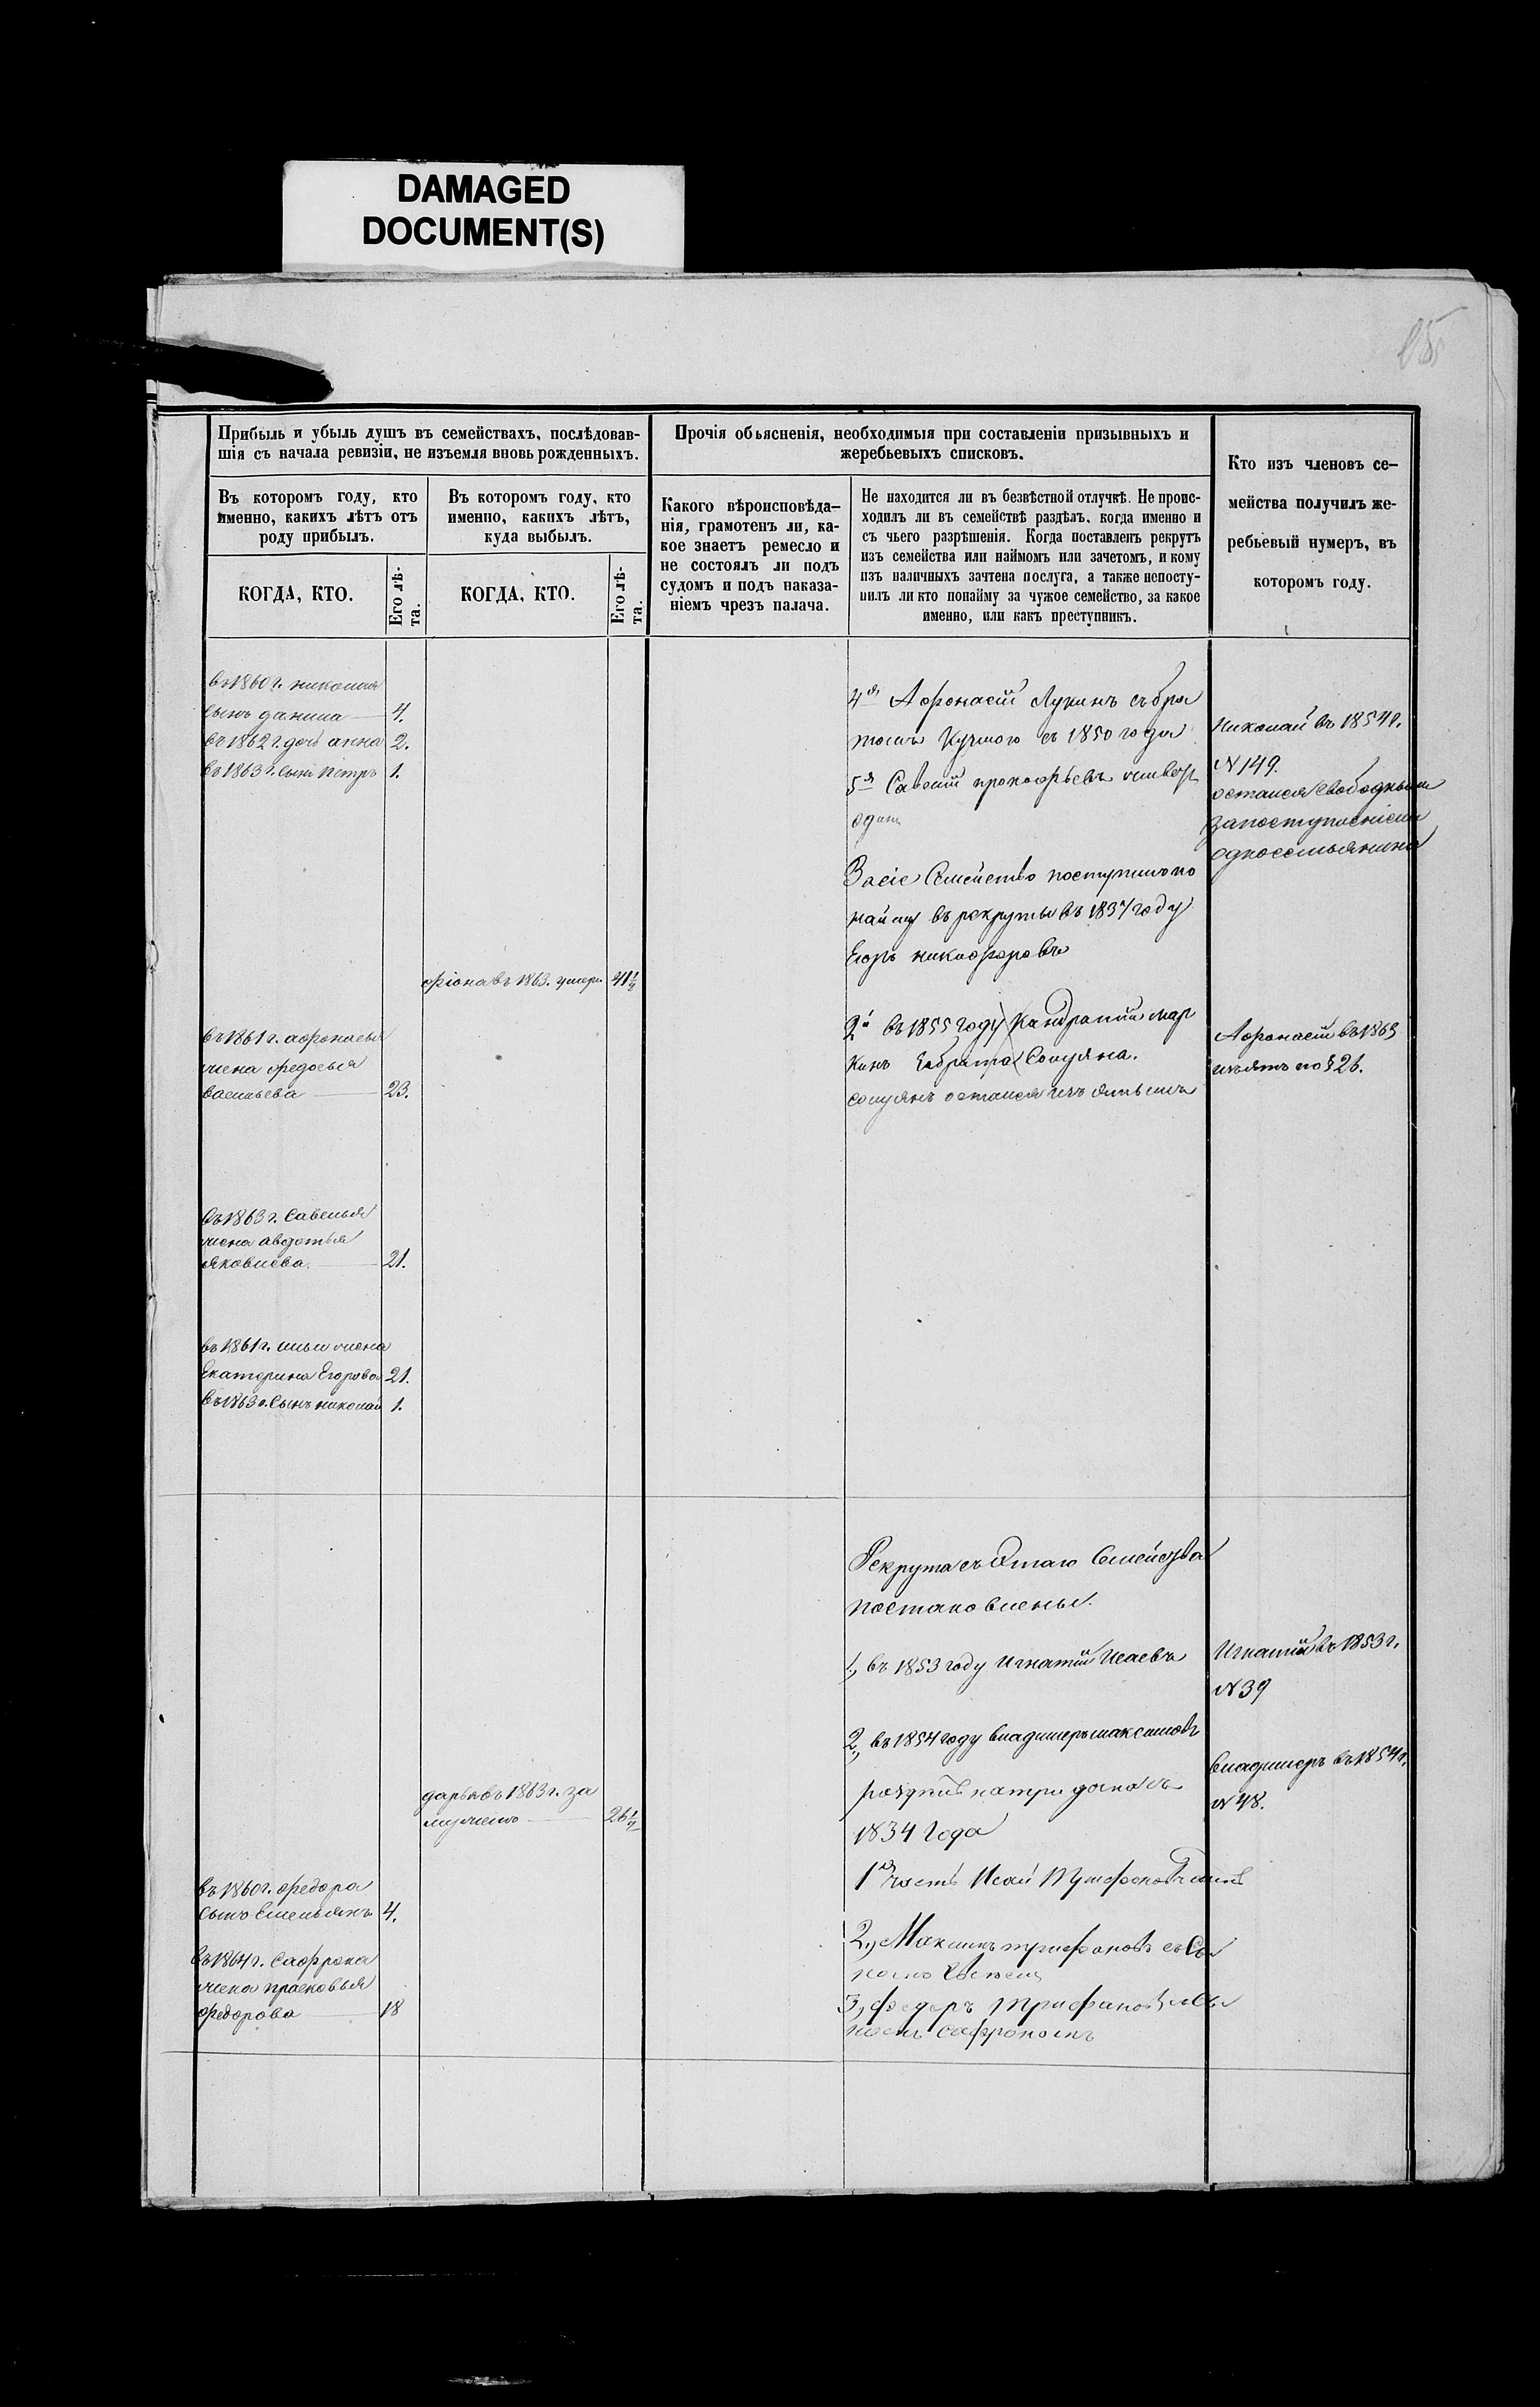 DAMAGED
DOCUMENT(S)
Прибыль и убыль душъ въ семействахъ, послѣдовав-
шія съ начала ревизіи, не изъемля вновь рожденныхъ.
Въ которомъ году, кто
именно, какихъ лѣтъ отъ
роду прибылъ.
КОГДА, КТО.
Его лѣ-
та.
Въ которомъ году, кто
именно, какихъ лѣтъ,
куда выбылъ.
КОГДА, КТО.
Его лѣ-
та.
Прочія объясненія, необходимыя при составленіи призывныхъ и
жеребьевыхъ списковъ.
Какого вѣроисповѣда-
нія, грамотенъ ли, ка-
кое знаетъ ремесло и
не состоялъ ли подъ
судомъ и подъ наказа-
ніемъ чрезъ палача.
Не находится ли въ безвѣстной отлучкѣ. Не проис-
ходилъ ли въ семействѣ раздѣлъ, когда именно и
съ чьего разрѣшенія. Когда поставленъ рекрутъ
изъ семейства или наймомъ или зачетомъ, и кому
изъ наличныхъ зачтена послуга, а также непосту-
пилъ ли кто понайму за чужое семейство, за какое
именно, или какъ преступникъ.
Кто изъ членовъ се-
мейства получилъ же-
ребьевый нумеръ, въ
которомъ году.
въ 1860 г. николая
сынъ данила 4.
въ 1862 г. дочь анна 2.
въ 1863 г. сынъ петръ 1.
4я Афонасій Лукинъ съ бра
томъ с 1850 года
5я Савелій прокофьевъ
одинъ
За сіе Семейство поступилъ по
найму въ рекруты въ 1837 году
Егоръ никифоровъ
Николай въ 1854 г.
№ 149.
остался свободнымъ
запоступленіемъ
односемьянина
въ 1863. умер. 41½
въ 1861 г. афонасья
жена федосья
васильева 23.
2й въ 1855 году Кандратій мар
кинъ
остался изъятымъ
Афонасій въ 1863
изъятъ по § 26.
въ 1863 г. Савелья
жена авдотья
яковлева. 21.
въ 1861 г. ильи жена
Екатерина Егорова 21.
въ 1863 г. Сынъ николай 1.
Рекрута съ Этаго Семейства
постановлены.
1, въ 1853 году Игнатій Исаевъ
Игнатій въ 1853 г.
№ 39
2, въ 1854 году владимеръ максимовъ
натри съ
1834 Года
Владимеръ въ 1854 г.
№ 48.
дарья въ 1863 г. за
мужемъ 26½
1я часть Исай Трифоновъ
въ 1860 г. федора
сынъ Емельянъ 4.
2, Максимъ трифоновъ съ Сы
номъ
въ 1864 г. Сафрона
жена прасковья
федорова 18
3, федоръ Трифановъ съ Сы
номъ сафрономъ